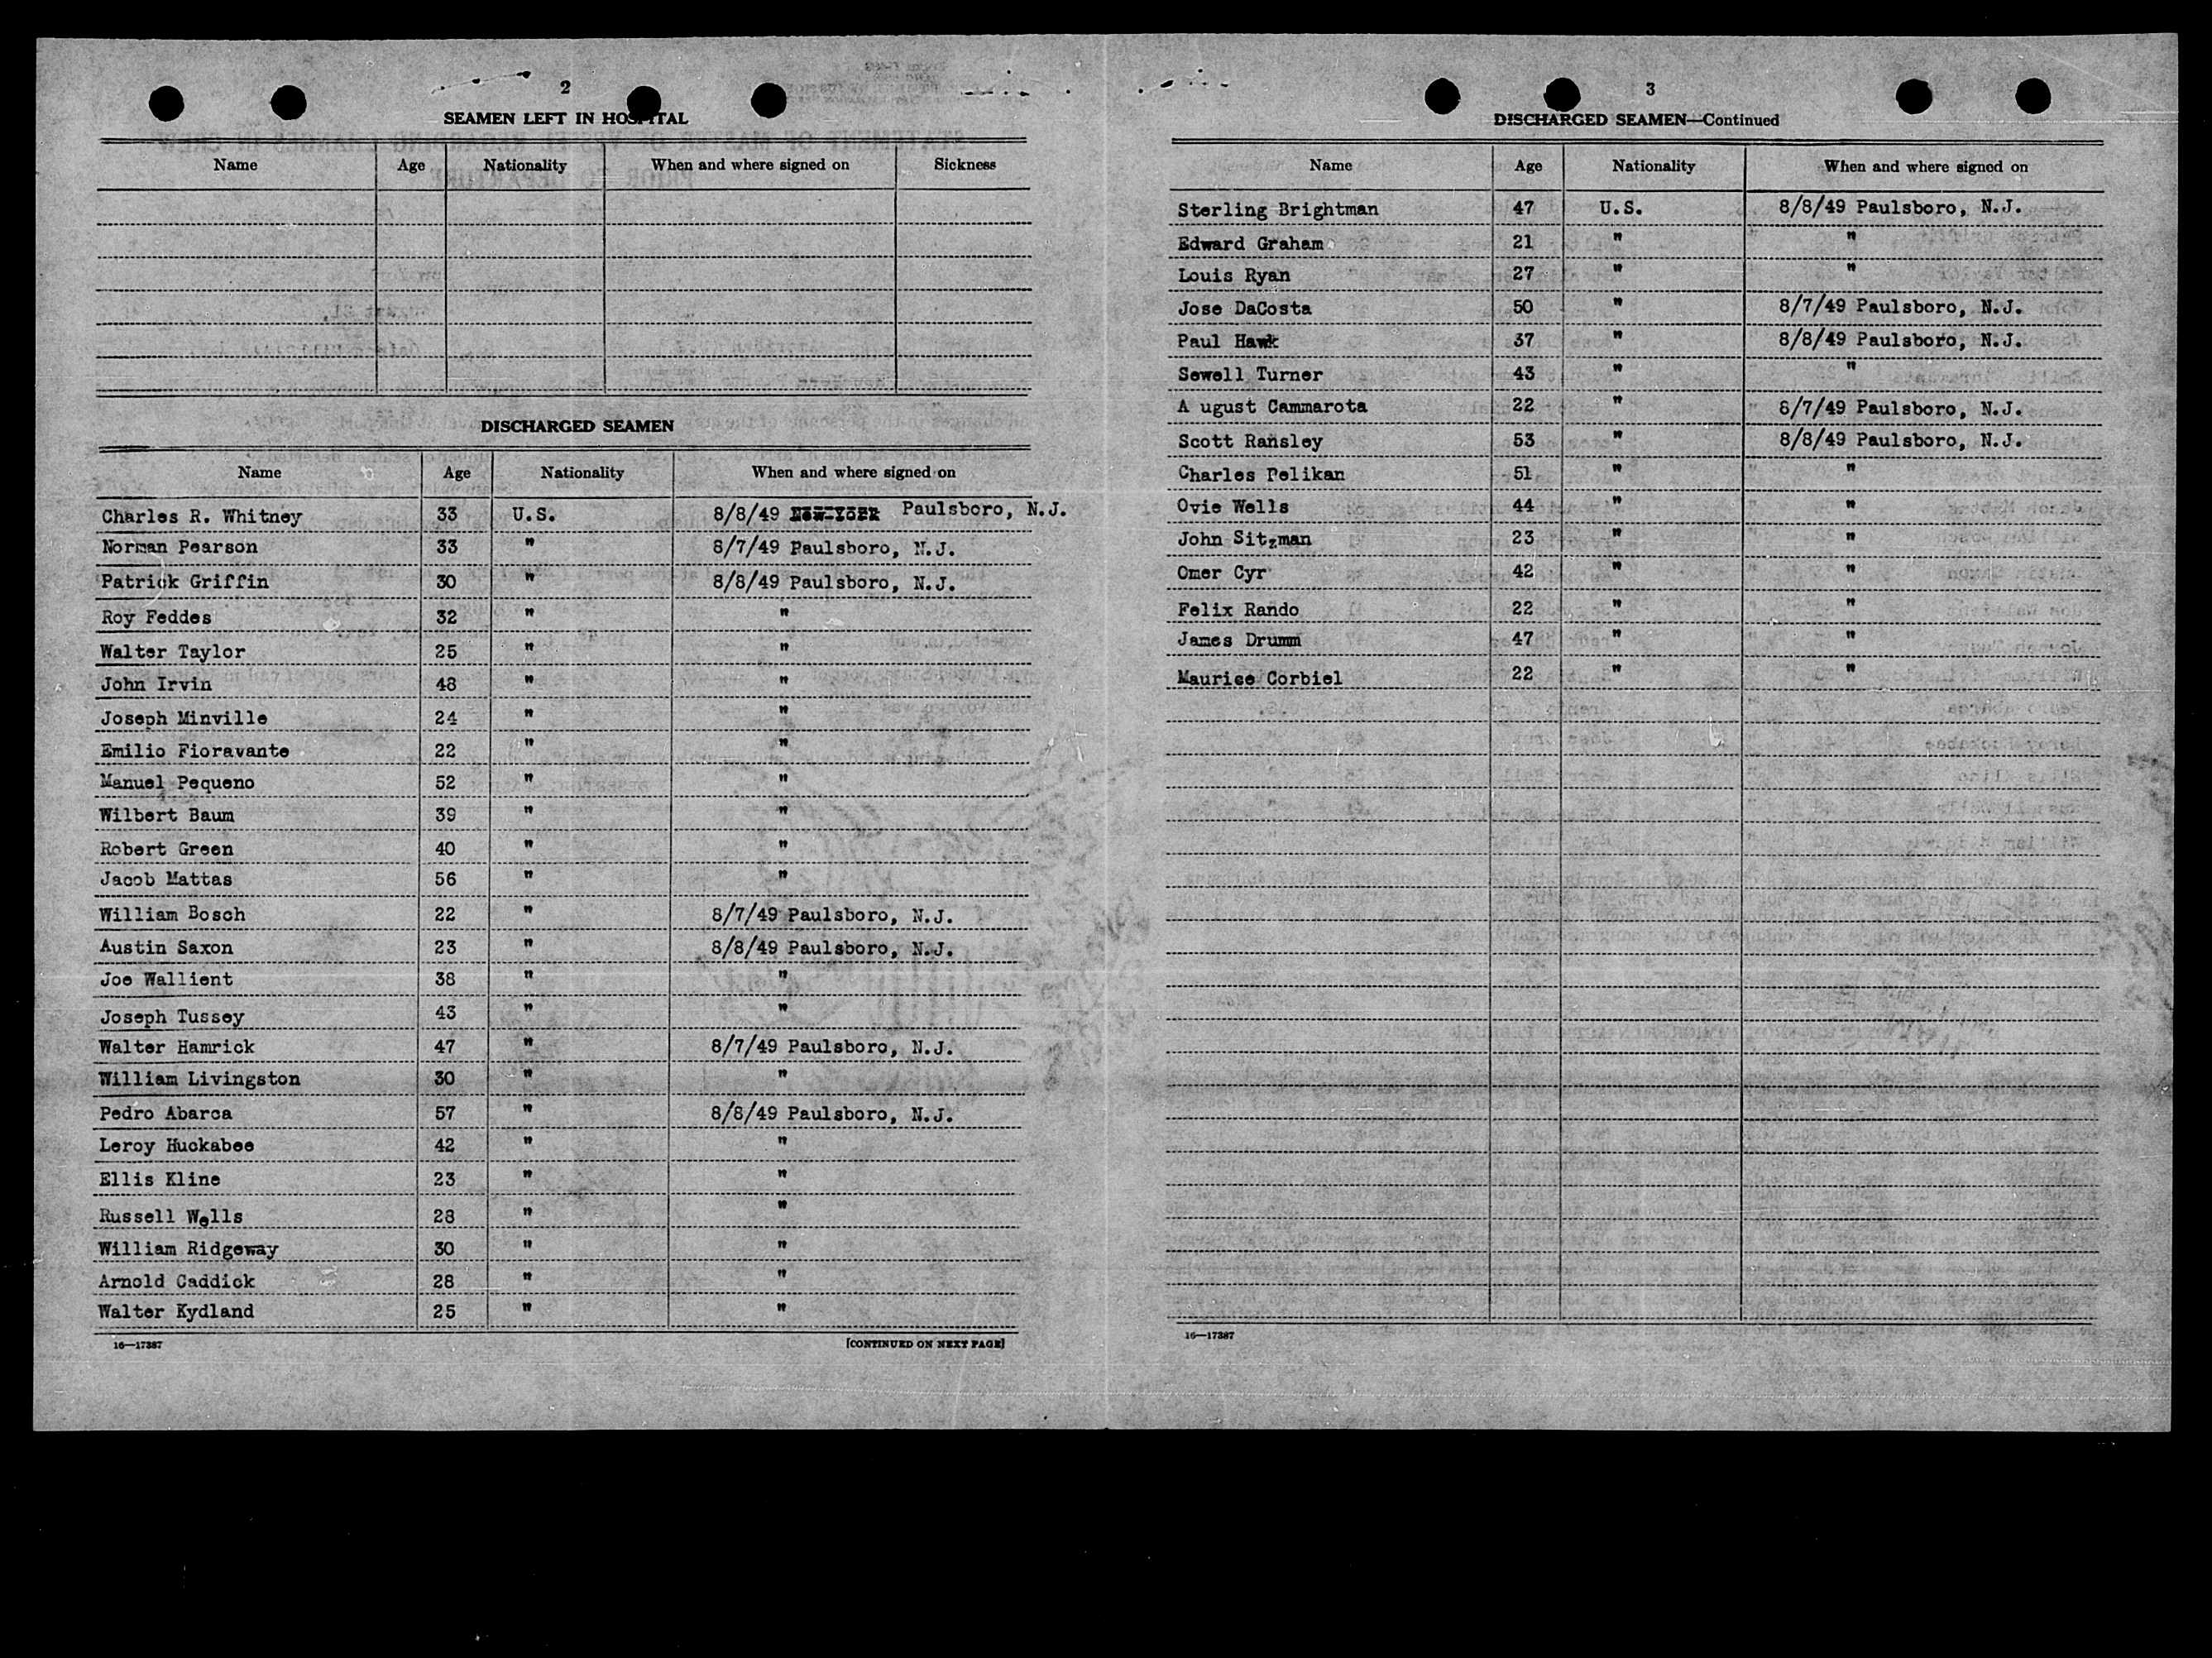 2
SEAMEN LEFT IN HOSPITAL
Name Age Nationality When and where signed on Sickness
DISCHARGED SEAMEN
Name Age Nationality When and where signed on
Charles R. Whitney 33 U.S. 8/8/49 Paulsboro, N.J.
Norman Pearson 33 " 8/7/49 Paulsboro, N.J.
Patrick Griffin 30 " 8/8/49 Paulsboro, N.J.
Roy Feddes 32 " "
Walter Taylor 25 " "
John Irvin 48 " "
Joseph Minville 24 " "
Emilio Fioravante 22 " "
Manuel Pequeno 52 " "
Wilbert Baum 39 " "
Robert Green 40 " "
Jacob Mattas 56 " "
William Bosch 22 " 8/7/49 Paulsboro, N.J.
Austin Saxon 23 " 8/8/49 Paulsboro, N.J.
Joe Wallient 38 " "
Joseph Tussey 43 " "
Walter Hamrick 47 " 8/7/49 Paulsboro, N.J.
William Livingston 30 " "
Pedro Abarca 57 " 8/8/49 Paulsboro, N.J.
Leroy Huckabee 42 " "
Ellis Kline 23 " "
Russell Wells 28 " "
William Ridgeway 30 " "
Arnold Caddick 28 " "
Walter Kydland 25 " "
16—17387 [CONTINUED ON NEXT PAGE]
3
DISCHARGED SEAMEN—Continued
Name Age Nationality When and where signed on
Sterling Brightman 47 U.S. 8/8/49 Paulsboro, N.J.
Edward Graham 21 " "
Louis Ryan 27 " "
Jose DaCosta 50 " 8/7/49 Paulsboro, N.J.
Paul Hawk 37 " 8/8/49 Paulsboro, N.J.
Sewell Turner 43 " "
A ugust Cammarota 22 " 8/7/49 Paulsboro, N.J.
Scott Ransley 53 " 8/8/49 Paulsboro, N.J.
Charles Pelikan 51 " "
Ovie Wells 44 " "
John Sitzman 23 " "
Omer Cyr 42 " "
Felix Rando 22 " "
James Drumm 47 " "
Maurice Corbiel 22 " "
16—17387